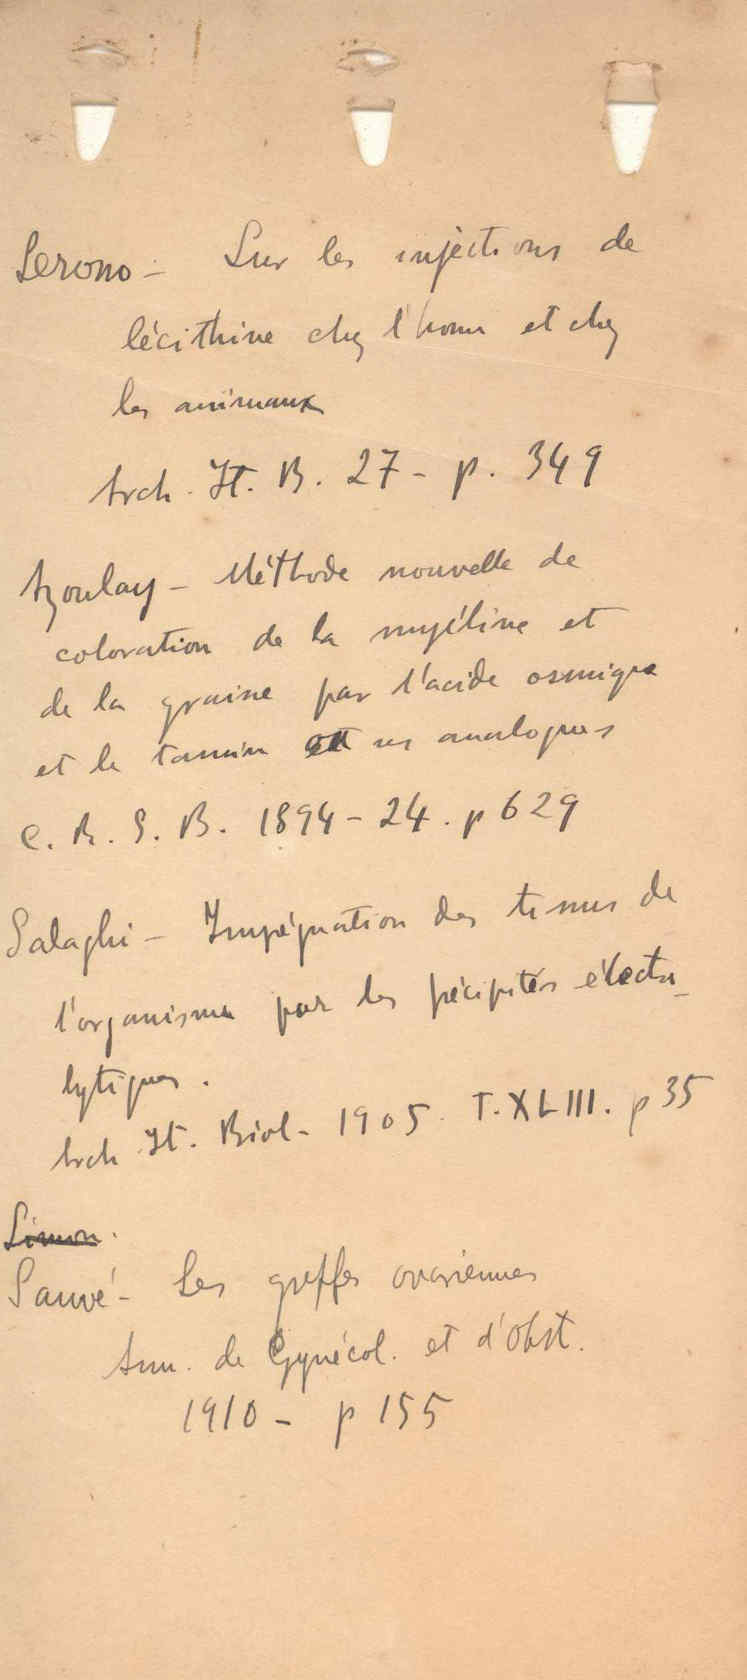 Serono - Sur les injections de
lécithine chez l'homme et chez
les animaux
Arch. It. B. 27 - p. 349
Azoulay - Méthode nouvelle de
coloration de la myéline et
de la graisse par l'acide osmique
et le tannin et ses analogues
C. R. S. B. 1894 - 24. p 629
Salaghi - Imprégnation des tissus de
l'organisme par les précipités électro-
lytiques.
Arch It. Biol - 1905. T. XLIII. p 35
Simon.
Sauvé - Les greffes ovariennes
Ann. de Gynécol. et d'Obst.
1910 - p 155